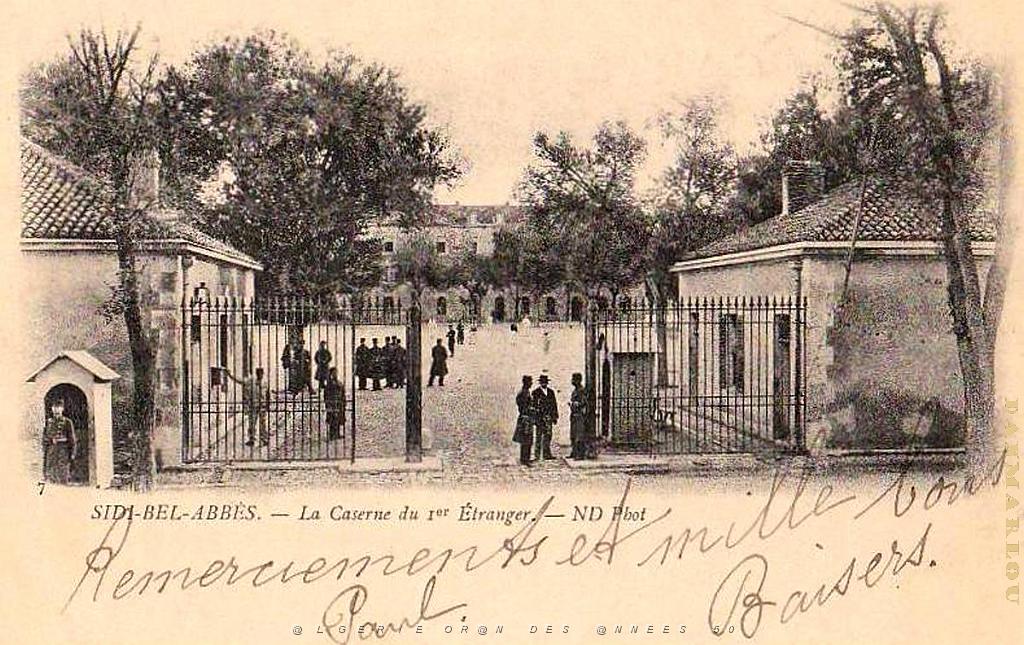 7
SIDI-BEL-ABBÈS. — La Caserne du 1er Étranger. — ND Phot
Remerciements et mille bons
Baisers.
Paul.
@LGERIE OR@N DES @NNEES 50
PAPYMARLOU